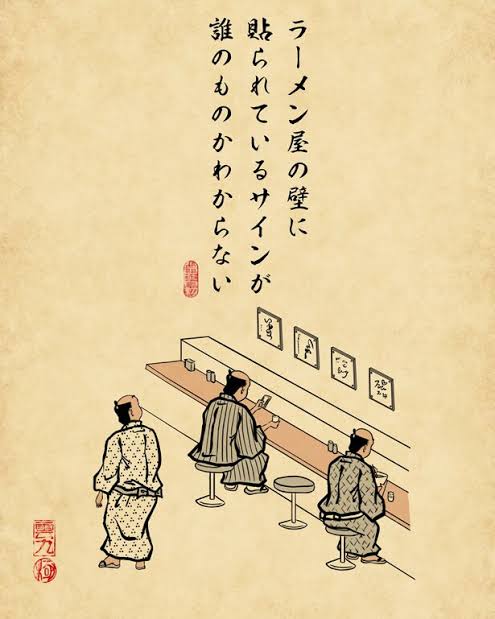 ラーメン屋の壁に
貼られているサインが
誰のものかわからない